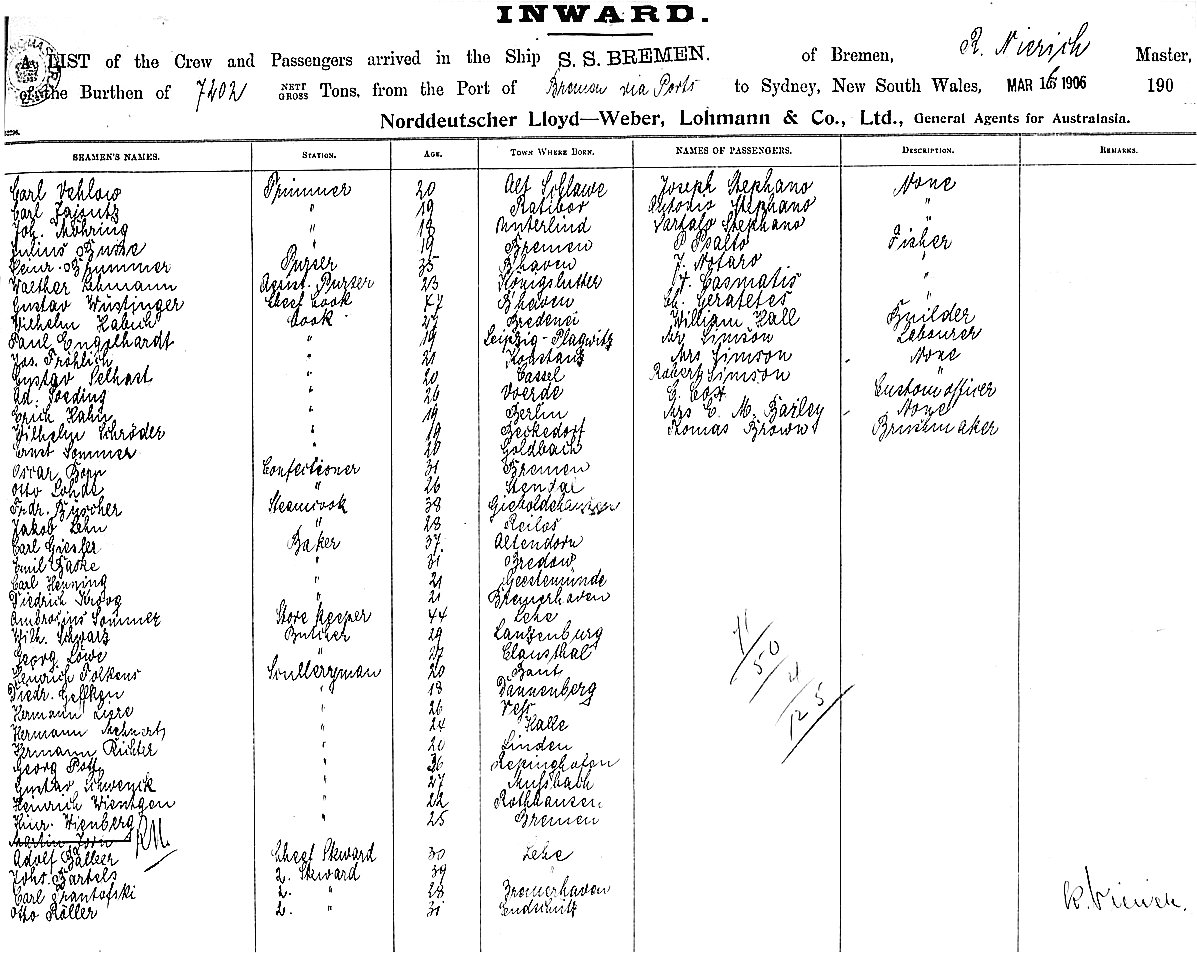 INWARD.
A LIST of the Crew and Passengers arrived in the Ship S. S. BREMEN. of Bremen, R. Nierich Master,
of the Burthen of 7402 NETT GROSS Tons, from the Port of Bremen via Ports to Sydney, New South Wales, MAR 16 1906 190
Norddeutscher Lloyd—Weber, Lohmann & Co., Ltd., General Agents for Australasia.
SEAMEN'S NAMES. STATION. AGE. TOWN WHERE BORN. NAMES OF PASSENGERS. DESCRIPTION. REMARKS.
Carl Vehlow Trimmer 20 Alt Schlawe Joseph Stephano None
Carl " 19 Ratibor Antonio Stephano "
Joh. Möhring " 18 Unterlind Stephano "
Julius " 19 Bremen P. Psalto Fisher
Heinr. Brummer Purser 35 B'haven J. Notaro "
Walther Lehmann Assist. Purser 23 Königslutter J. Casmatis "
Gustav Wüstinger Chief Cook 47 B'haven Ch. Geratetes "
Wilhelm Habich Cook 27 Bredenei William Hall Builder
Paul Engelhardt " 19 Leipzig-Plagwitz Mr Simson Labourer
Jos. Fröhlich " 21 Konstanz Mrs Simson None
Gustav Selhast " 20 Cassel Robert Simson "
Ad. Soeding " 26 Voerde G. Cox Custom officer
Erich Hahn " 19 Berlin Mrs C. M. Bailey None
Wilhelm Schröder " 19 Beckedorf Thomas Brown Brushmaker
Ernst Sommer " 20 Goldbach
Oscar Bopp Confectioner 31 Bremen
Otto Lohde " 26 Stendal
Frdr. Büscher Steamcook 38 Gieboldehausen
Jakob Lehn " 28 Reilos
Carl Giesler Baker 37 Altendorn
Emil Baske " 31 Bredow
Carl Henning " 21 Geestemünde
Diedrich Kroog " 21 Bremerhaven
Ambrosius Sommer Store keeper 44 Lehe
Wilh. Schwarz Butcher 29 Lauenburg
Georg Löwe " 27 Clausthal
Heinrich Folkens Scullerryman 20 Bant
Diedr. Geffken " 18 Dannenberg
Hermann " 26
Hermann Mehnert " 24 Halle
Hermann Richter " 20 Linden
Georg Pott " 36 Repinghofen
Gustav Schwenck " 27 Mussbach
Heinrich Wientgen " 22 Rotthausen
Hinr. Wienberg " 25 Bremen
Martin Jorn RN.
Adolf Chief Steward 30 Lehe
Johs. Bartels 2. Steward 39 "
Carl Frantofski 2. " 28 Bremerhaven
Otto Röller 2. " 31
11/50
11/125
R. Nierich.